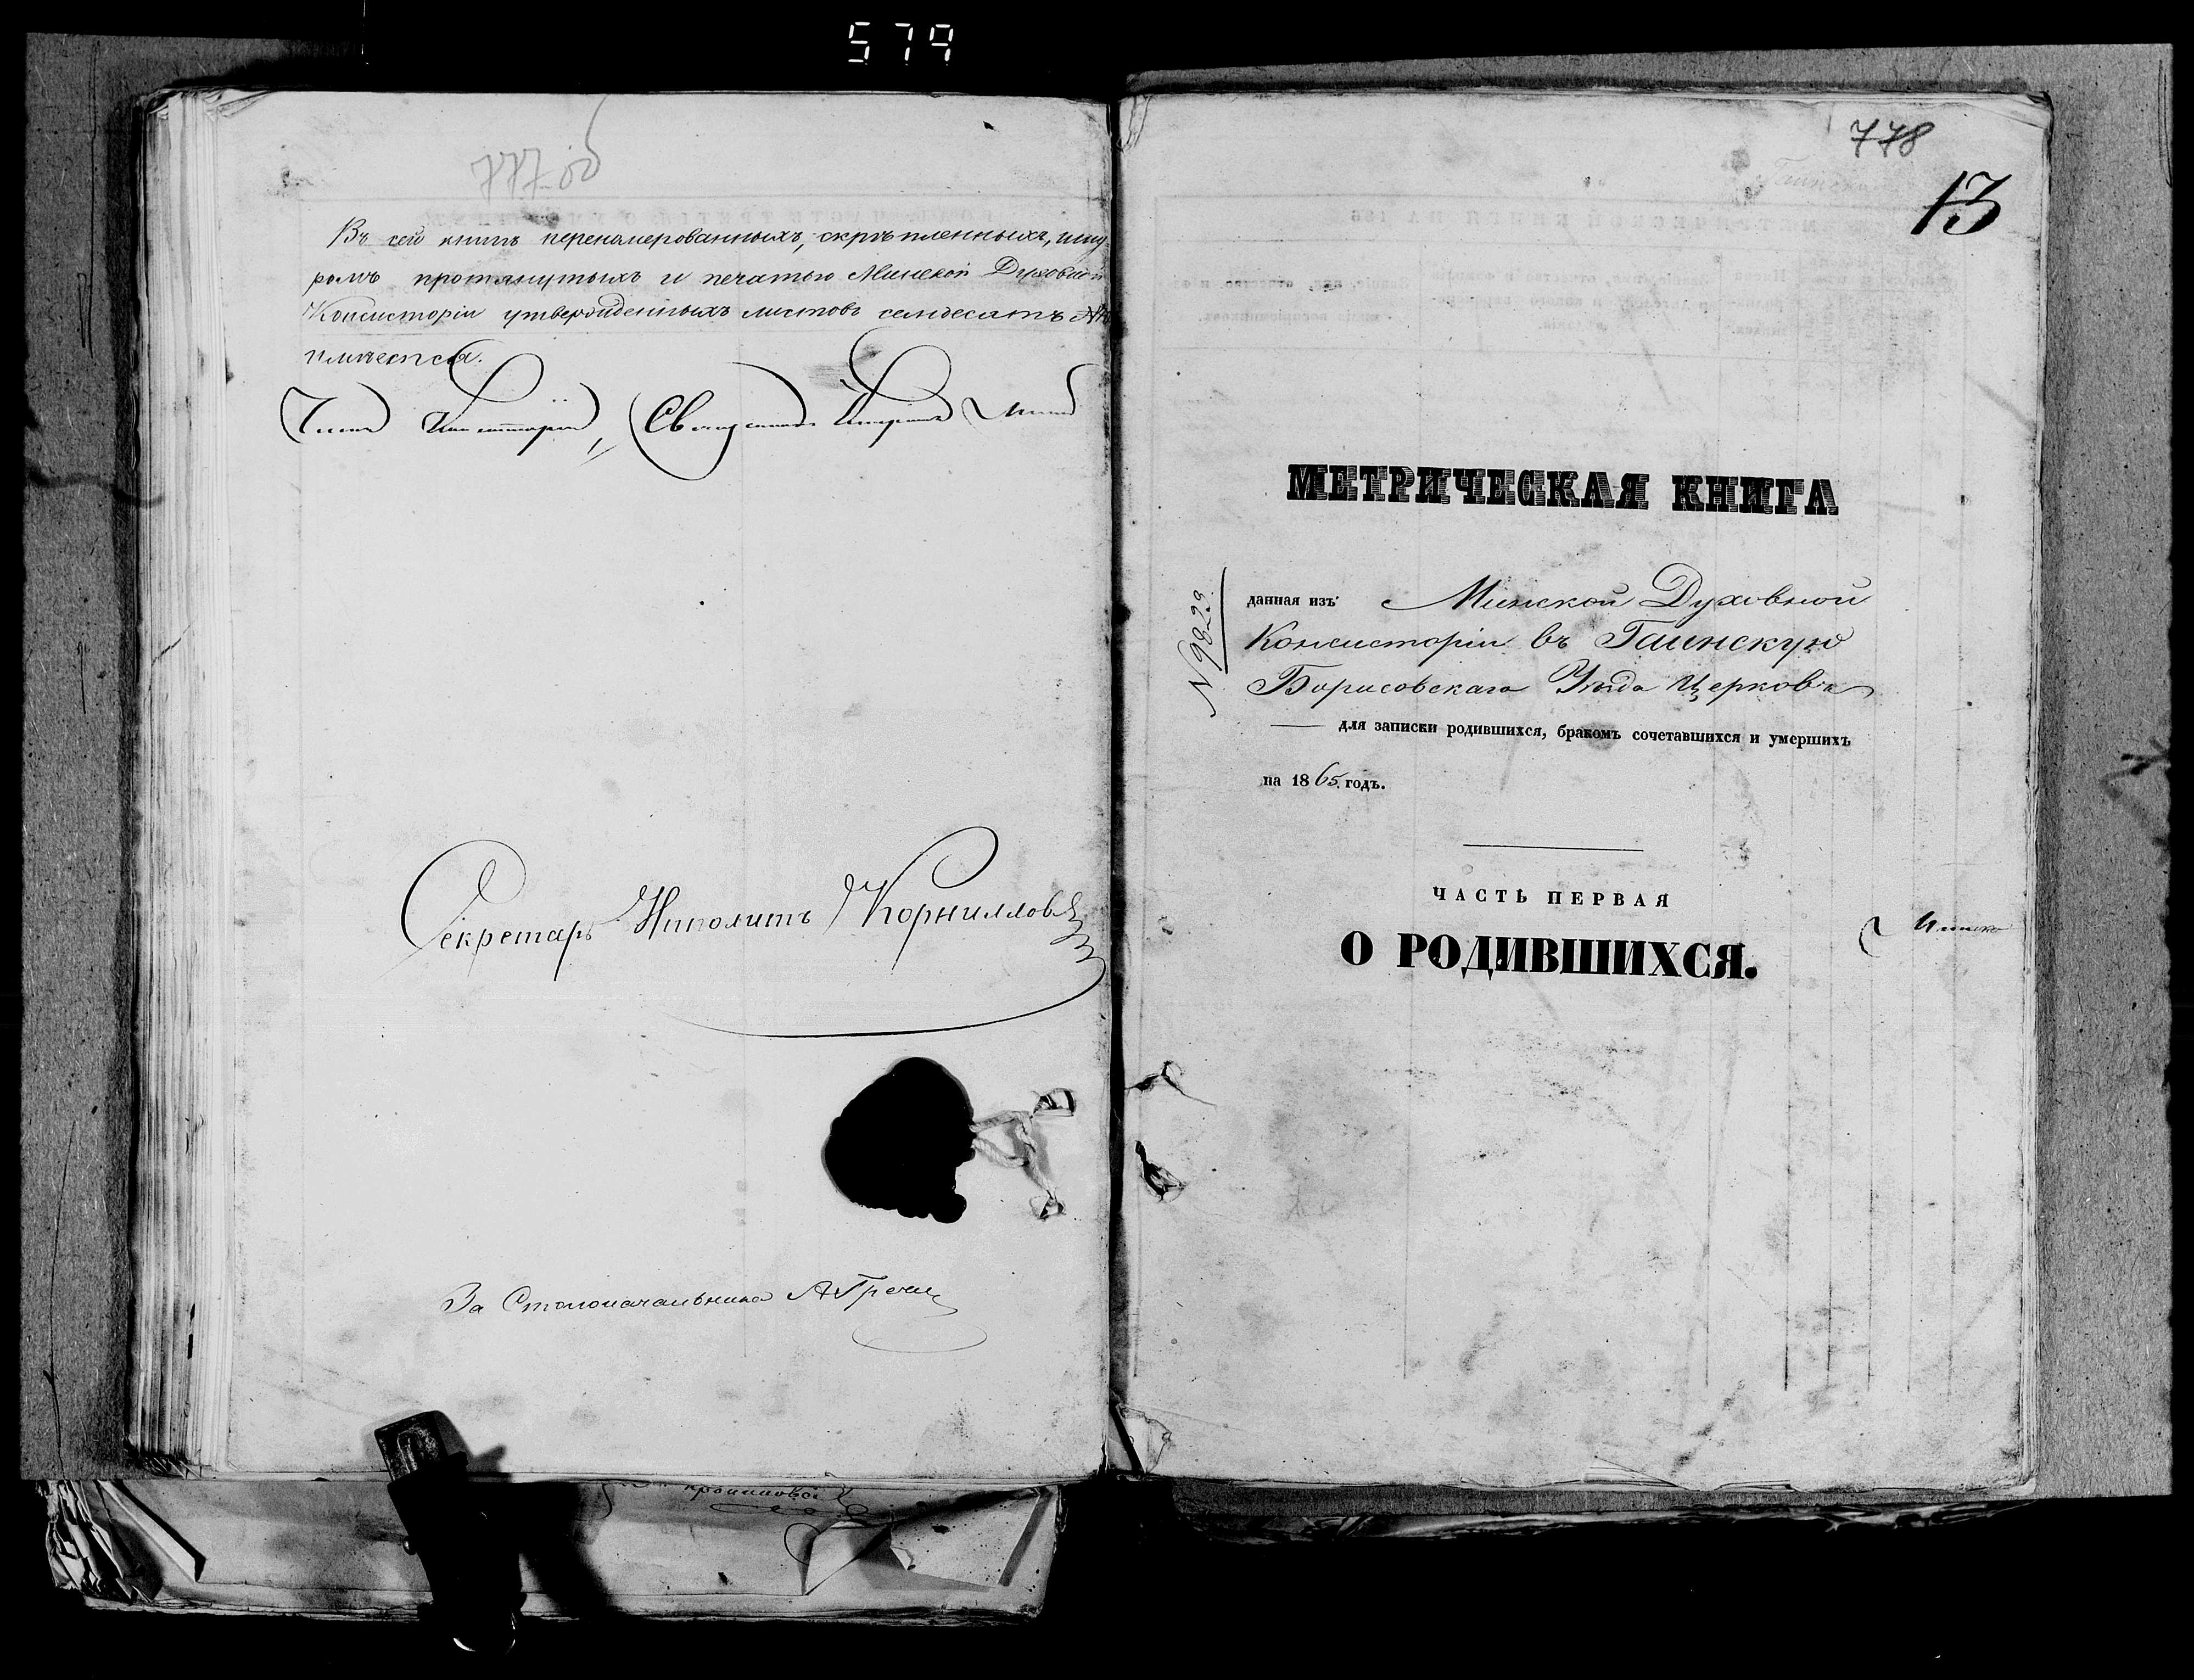 579
777 об
Въ сей книгѣ перенумерованныхъ, скрѣпленныхъ, шну
ромъ протянутыхъ и печатью Минской Духовной
Консисторіи утвержденныхъ листовъ семдесятъ
имѣется.
Членъ Консисторіи, Священникъ
Секретарь Иполитъ Корниллов
За Столоначальника А Греч
778
13
МЕТРИЧЕСКАЯ КНИГА
N 9829
данная изъ Минской Духовной
Консисторіи въ Гаинскую
Борисовскаго Уѣзда Церковь
для записки родившихся, бракомъ сочетавшихся и умершихъ
на 1865 годъ.
ЧАСТЬ ПЕРВАЯ
О РОДИВШИХСЯ.